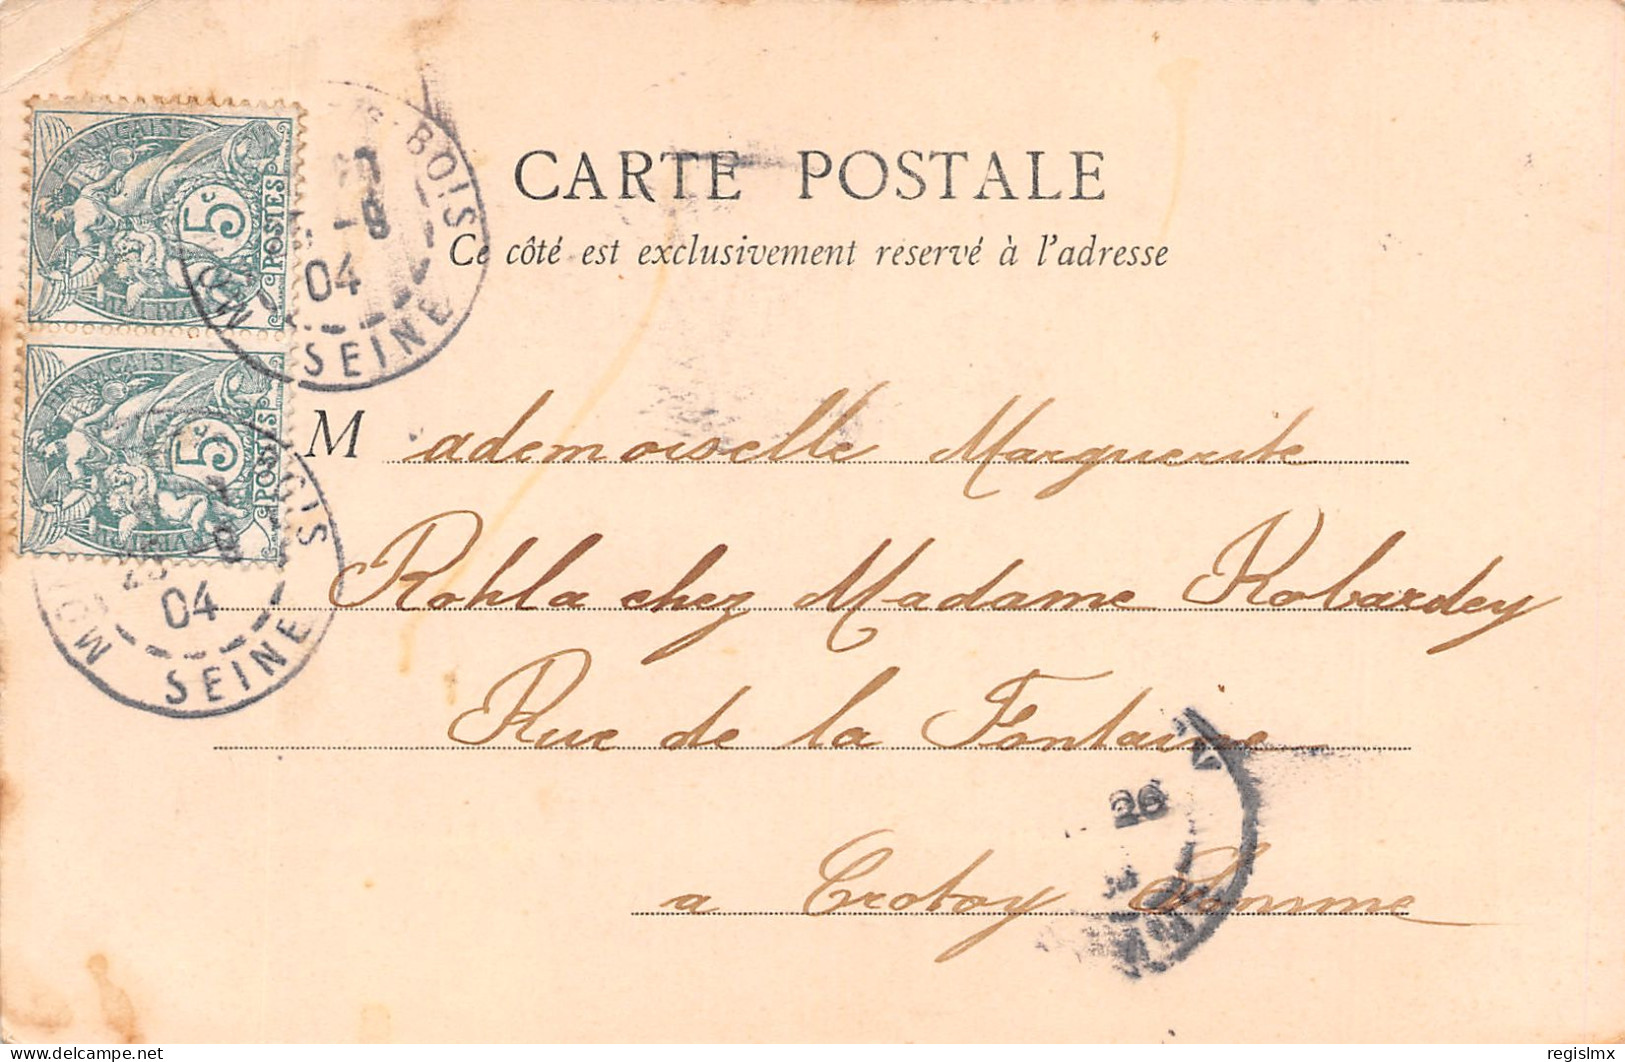 CARTE POSTALE
Ce côté est exclusivement réservé à l'adresse
FRANÇAISE
5c
POSTES
BOIS
04
SEINE
FRANÇAISE
5c
POSTES
BOIS
04
SEINE
Mademoiselle Marguerite
Rohla chez Madame Robardey
Rue de la Fontaine
a Crotoy Somme
26
www.delcampe.net
regislmx